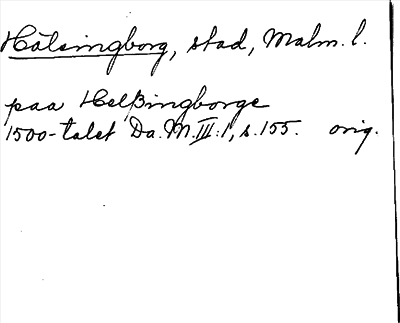 Hälsingborg, stad, Malm. l.
paa Helßingborge
1500-talet Da. M. III: 1, s. 155. orig.